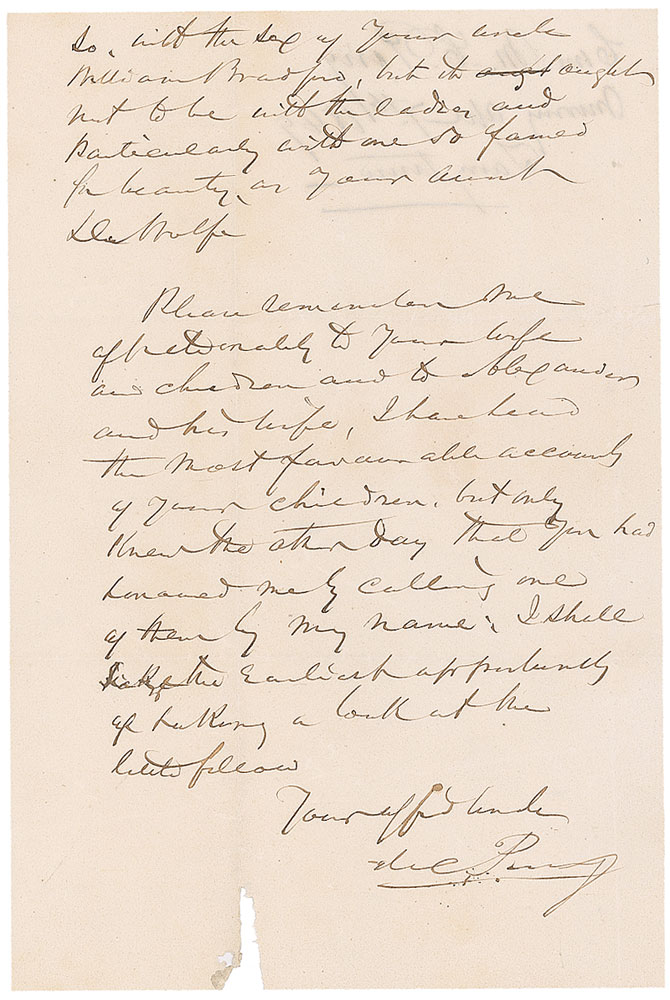 so, with the sex of Your uncle
William Bradford, but it ought
not to be with the ladies and
particularly with one so famed
for beauty, as Your aunt
De Wolfe
Please remember me
affectionately to Your wife
and children and to Alexander
and his wife, I have heard
the most favourable accounts
of Your children, but only
Knew the other day that You had
honoured me by calling one
of them by my name. I shall
take the Earliest opportunity
of taking a look at the
little fellow
Your affd Uncle
M C Perry